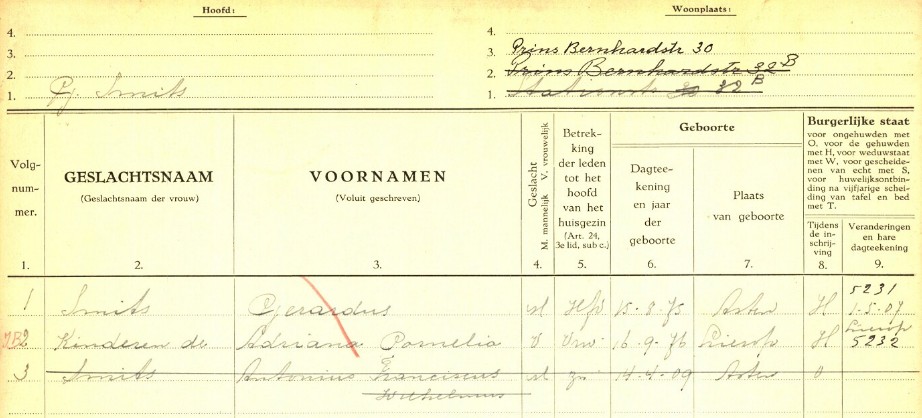 Hoofd: Woonplaats:
4. 4.
3. 3. Prins Bernhardstr 30
2. 2. Prins Bernhardstr 32 B
1. G. Smits 1. 82 B
Volg-nummer. GESLACHTSNAAM (Geslachtsnaam der vrouw) VOORNAMEN (Voluit geschreven) Geslacht M. mannelijk V. vrouwelijk Betrekking der leden tot het hoofd van het huisgezin (Art. 24, 3e lid, sub c.) Geboorte Dagteekening en jaar der geboorte Plaats van geboorte Burgerlijke staat
voor ongehuwden met O. voor de gehuwden met H, voor weduwstaat met W, voor gescheidenen van echt met S, voor huwelijksontbinding na vijfjarige scheiding van tafel en bed met T.
Tijdens de inschrijving Veranderingen en hare dagteekening
1. 2. 3. 4. 5. 6. 7. 8. 9.
5231
1 Smits Gerardus M Hfd 15-8-75 Asten H 1-5-07
Lierop
2 Kinderen de Adriana Pornelia V Vrw 16-9-76 Lierop H 5232
3 Smits Antonius Franciscus M zn 14-4-09 Asten O
Wilhelmus